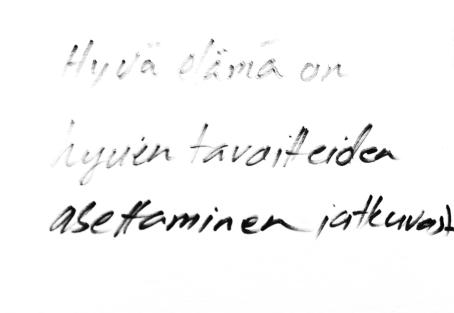 Hyvä elämä on
hyvien tavoitteiden
asettaminen jatkuvast